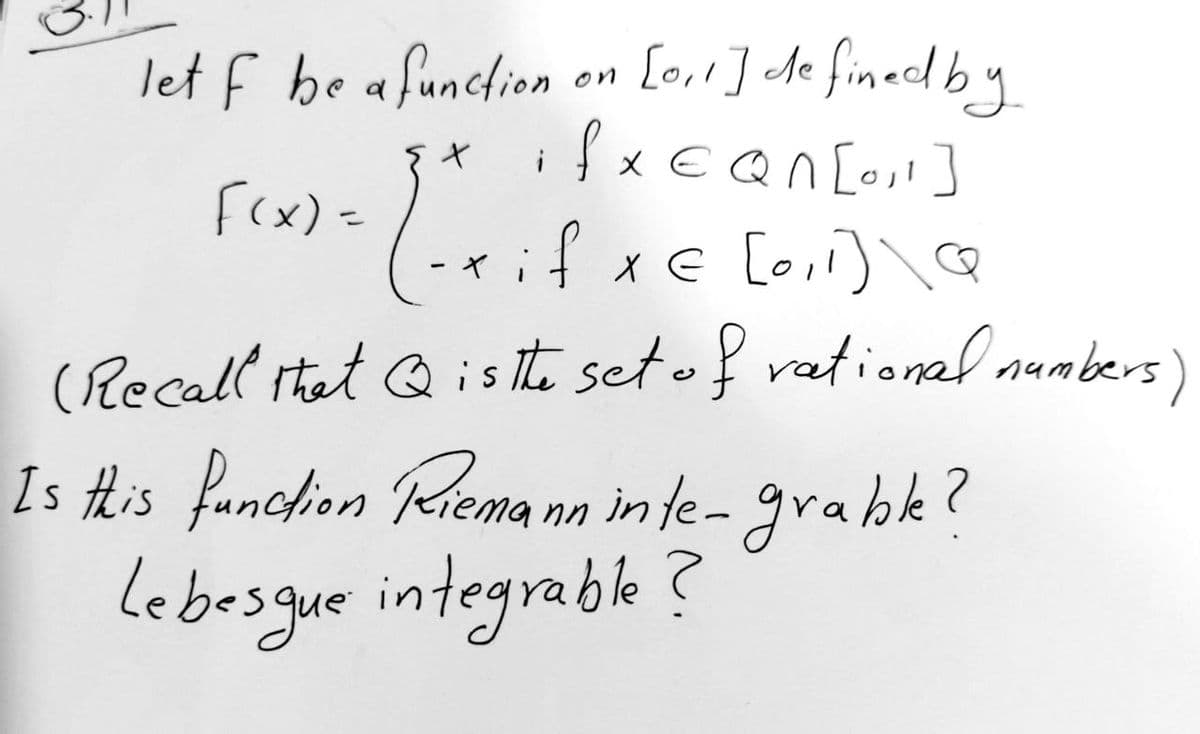 3.11
let f be a function on [0,1] defined by
F(x) = { x if x ∈ Q ∩ [0,1]
-x if x ∈ [0,1] \ Q
(Recall that Q is the set of rational numbers)
Is this function Riemann inte- grable?
Lebesgue integrable?